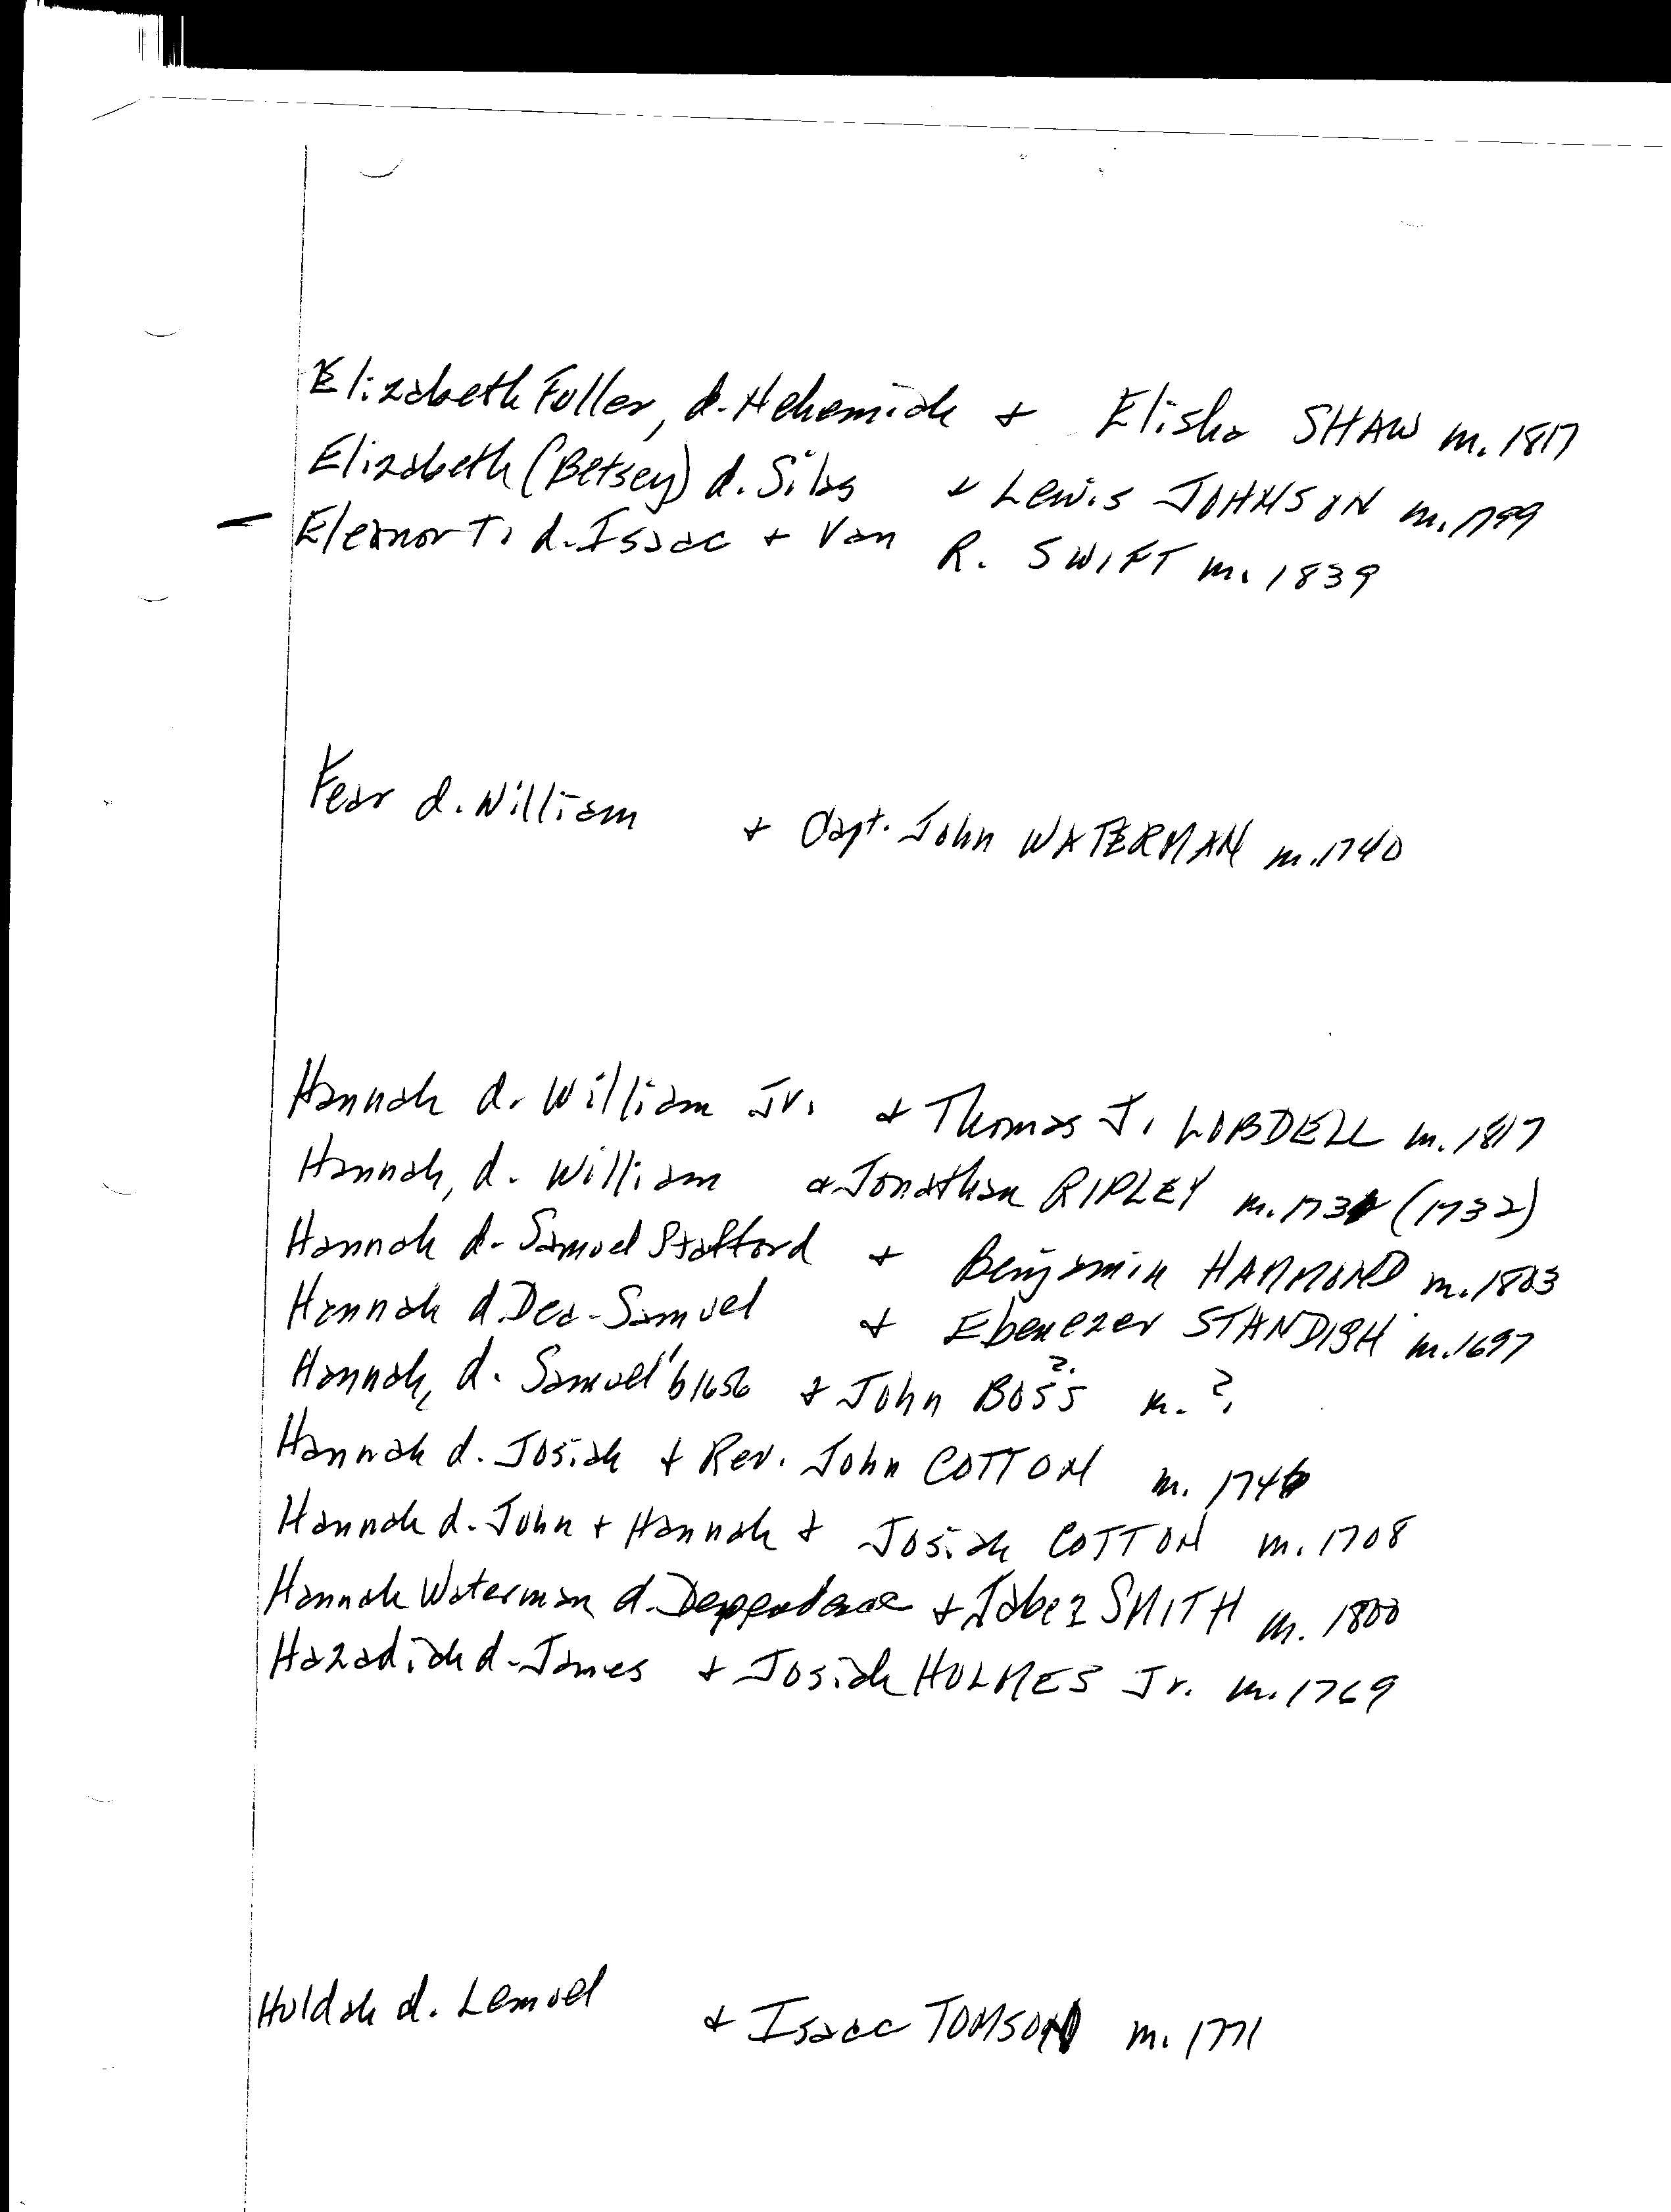 Elizabeth Fuller, d. Nehemiah + Elisha SHAW m. 1817
Elizabeth (Betsey) d. Silas + Lewis JOHNSON m. 1799
- Eleanor T. d. Isaac + Van R. SWIFT m. 1839
Fear d. William + Capt. John WATERMAN m. 1740
Hannah d. William Jr. + Thomas J. LOBDELL m. 1817
Hannah, d. William + Jonathan RIPLEY m. (1732)
Hannah d. Samuel Stafford + Benjamin HAMMOND m. 1803
Hannah d. Dea. Samuel + Ebenezer STANDISH m. 1697
Hannah, d. Samuel b 1656 + John BOSS ? m. ?
Hannah d. Josiah + Rev. John COTTON m. 1746
Hannah d. John + Hannah + Josiah COTTON m. 1708
Hannah Waterman d. Dependence + Jabez SMITH m. 1800
Hazadiah d. James + Josiah HOLMES Jr. m. 1769
Huldah d. Lemuel + Isaac TOMSON m. 1771